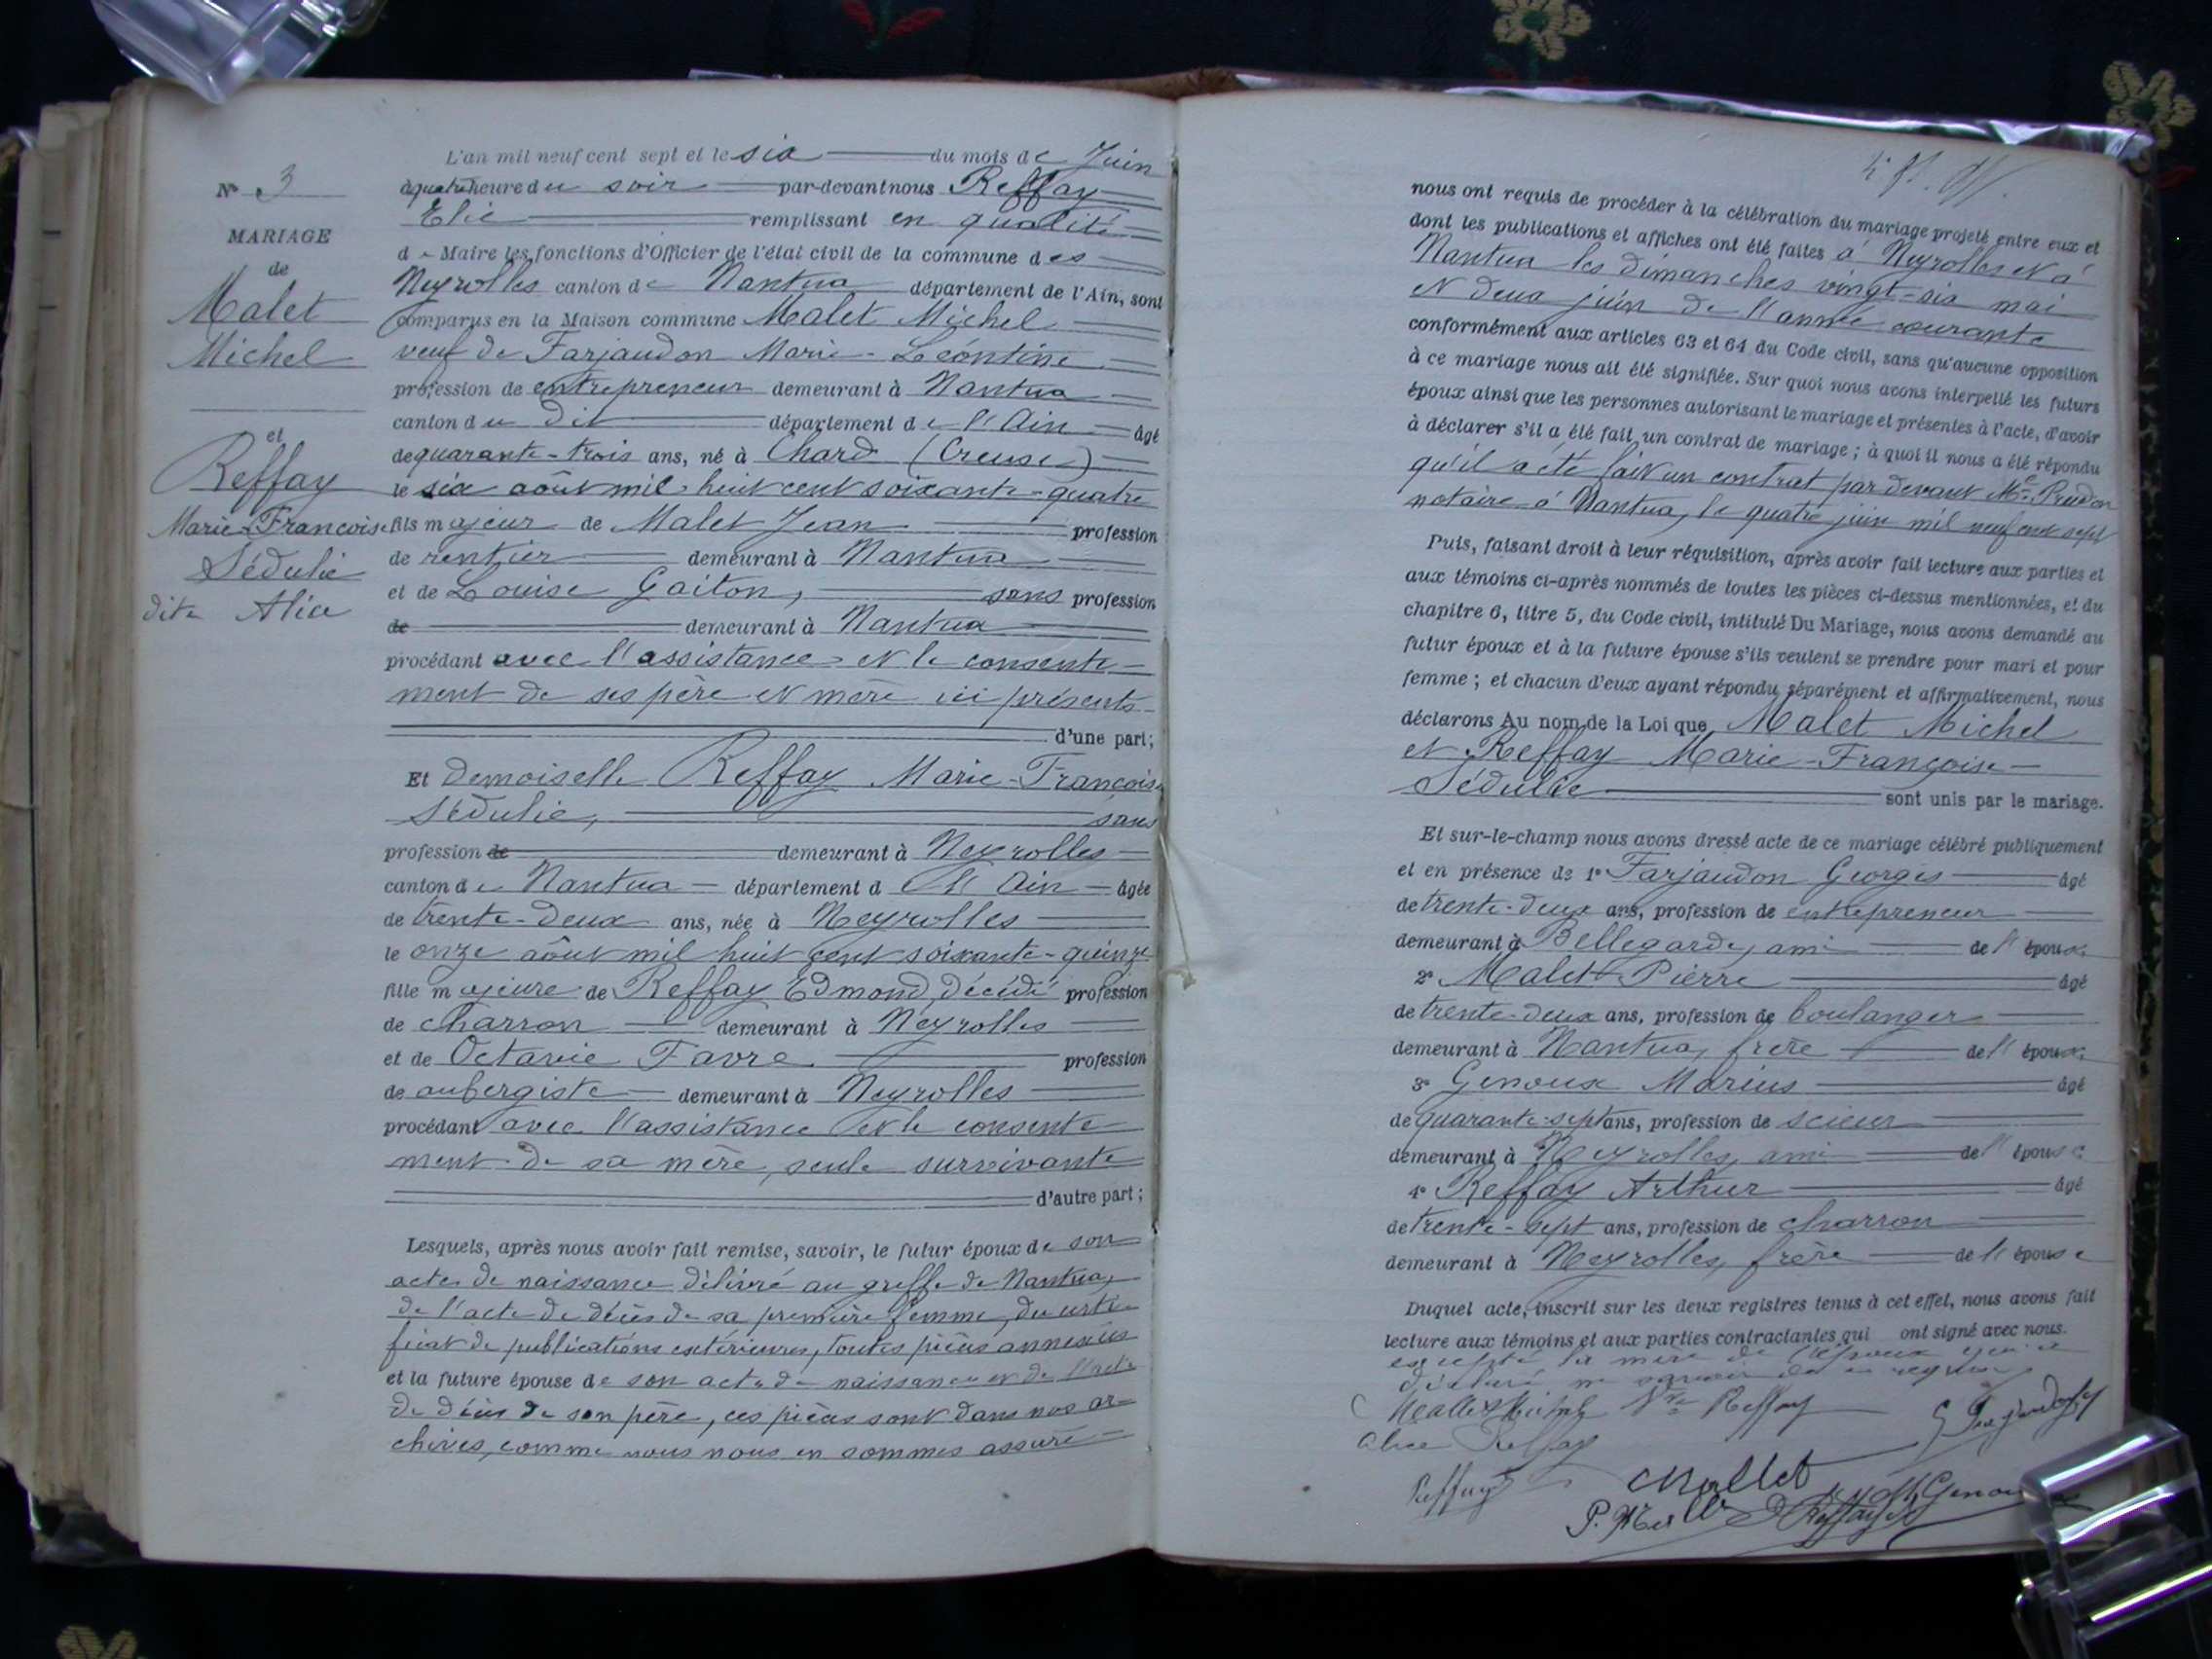 N° 3
MARIAGE
de
Malet
Michel
et
Reffay
Marie-Françoise
Sédulie
dite Alice
L'an mil neuf cent sept et le six du mois de Juin
à quatre heure du soir par-devant nous Reffay
Elie remplissant en qualité
de Maire les fonctions d'Officier de l'état civil de la commune des
Neyrolles canton de Nantua département de l'Ain, sont
comparus en la Maison commune Malet Michel
veuf de Farjaudon Marie-Léontine
profession de entrepreneur demeurant à Nantua
canton du dit département de l'Ain âgé
de quarante-trois ans, né à Chard (Creuse)
le six août mil huit cent soixante-quatre
fils majeur de Malet Jean profession
de rentier demeurant à Nantua
et de Louise Gaiton, sans profession
de demeurant à Nantua
procédant avec l'assistance et le consente-
ment de ses père et mère ici présents
d'une part;
Et Demoiselle Reffay Marie-Françoise
Sédulie, sans
profession de demeurant à Neyrolles
canton de Nantua département de l'Ain âgée
de trente-deux ans, née à Neyrolles
le onze août mil huit cent soixante-quinze
fille majeure de Reffay Edmond, décédé profession
de charron demeurant à Neyrolles
et de Octavie Favre profession
de aubergiste demeurant à Neyrolles
procédant avec l'assistance et le consente-
ment de sa mère, seule survivante
d'autre part;
Lesquels, après nous avoir fait remise, savoir, le futur époux de son
acte de naissance délivré au greffe de Nantua,
de l'acte de décès de sa première femme, du certi-
ficat de publications extérieures, toutes pièces annexées
et la future épouse de son acte de naissance et de l'acte
de décès de son père, ces pièces sont dans nos ar-
chives, comme nous nous en sommes assuré
nous ont requis de procéder à la célébration du mariage projeté entre eux et
dont les publications et affiches ont été faites à Neyrolles et à
Nantua les dimanches vingt-six mai
et deux juin de l'année courante
conformément aux articles 63 et 64 du Code civil, sans qu'aucune opposition
à ce mariage nous ait été signifiée. Sur quoi nous avons interpellé les futurs
époux ainsi que les personnes autorisant le mariage et présentes à l'acte, d'avoir
à déclarer s'il a été fait un contrat de mariage; à quoi il nous a été répondu
qu'il a été fait un contrat par devant Me Prudon
notaire à Nantua, le quatre juin mil neuf cent sept
Puis, faisant droit à leur réquisition, après avoir fait lecture aux parties et
aux témoins ci-après nommés de toutes les pièces ci-dessus mentionnées, et du
chapitre 6, titre 5, du Code civil, intitulé Du Mariage, nous avons demandé au
futur époux et à la future épouse s'ils veulent se prendre pour mari et pour
femme; et chacun d'eux ayant répondu séparément et affirmativement, nous
déclarons Au nom de la Loi que Malet Michel
et Reffay Marie-Françoise
Sédulie sont unis par le mariage.
Et sur-le-champ nous avons dressé acte de ce mariage célébré publiquement
et en présence de 1° Farjaudon Georges âgé
de trente-deux ans, profession de entrepreneur
demeurant à Bellegarde, ami de l'époux
2° Malet Pierre âgé
de trente-deux ans, profession de boulanger
demeurant à Nantua, frère de l'époux
3° Genoux Marius âgé
de quarante-sept ans, profession de scieur
demeurant à Neyrolles, ami de l'épouse
4° Reffay Arthur âgé
de trente-sept ans, profession de charron
demeurant à Neyrolles, frère de l'épouse
Duquel acte, inscrit sur les deux registres tenus à cet effet, nous avons fait
lecture aux témoins et aux parties contractantes qui ont signé avec nous.
excepté la mère de l'époux qui a
déclaré ne savoir de ce requise
Mallet Michel Vve Reffay G Farjaudon
Alice Reffay
Reffay Mallet
P. Mallet Reffay Genoux